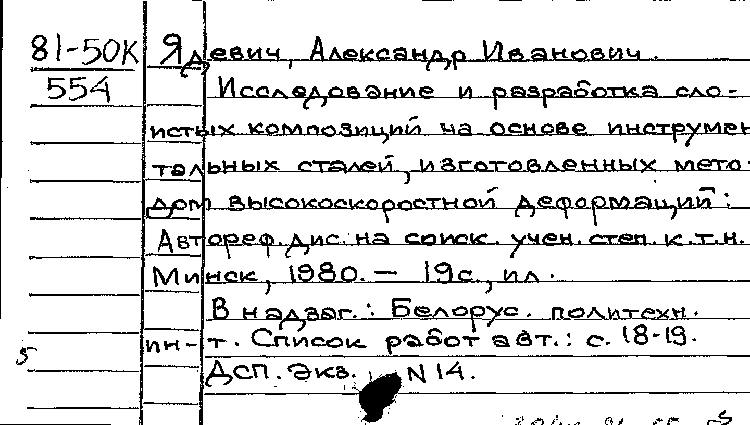 81-50К
554
Ядевич, Александр Иванович.
Исследование и разработка сло-
истых композиций на основе инструмен
тальных сталей, изготовленных мето-
дом высокоскоростной деформаций:
Автореф. дис. на соиск. учен. степ. к.т.н.
Минск, 1980. — 19с., ил.
В надзаг.: Белорус. политехн.
ин-т. Список работ авт.: с. 18-19.
Дсп. Экз. N 14.
5